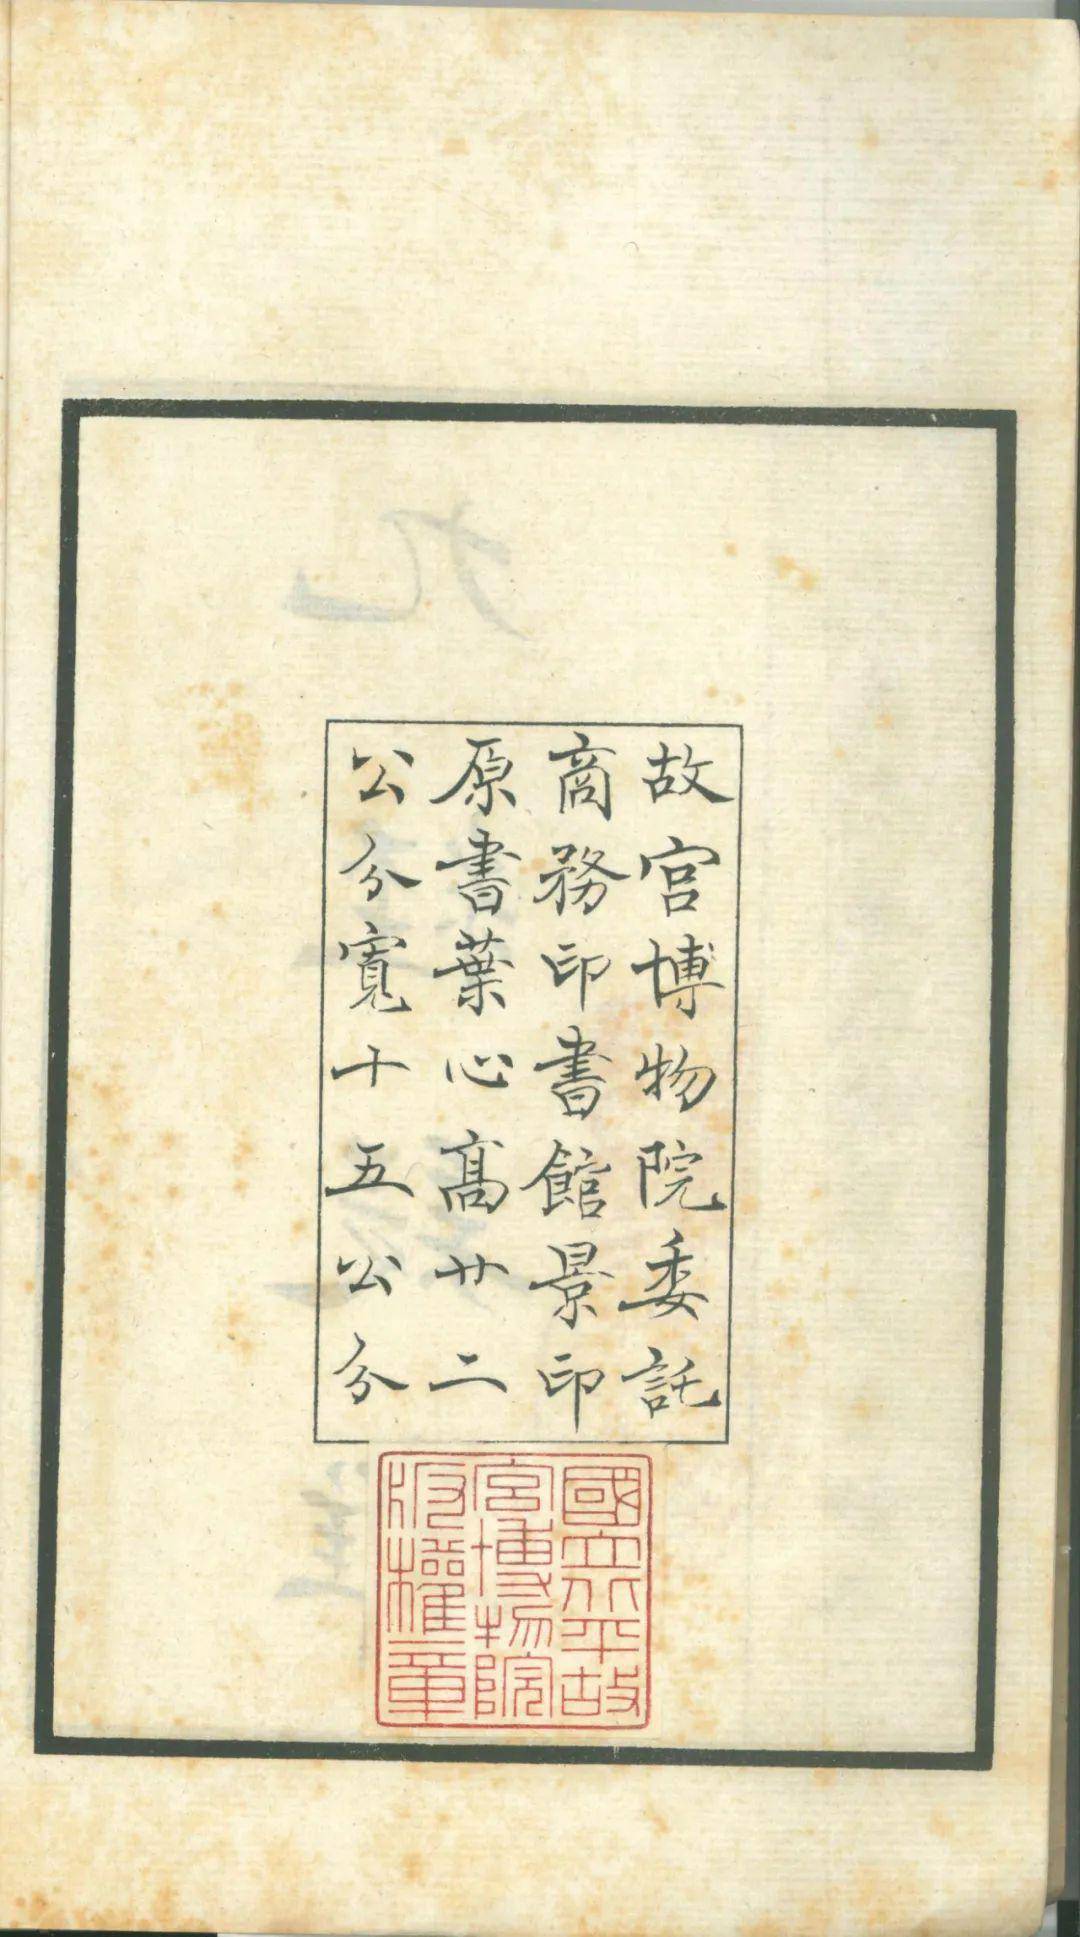 故宫博物院委託
商務印書館景印
原書葉心高廿二
公分寬十五公分
國立北平故
宮博物院
版權之章